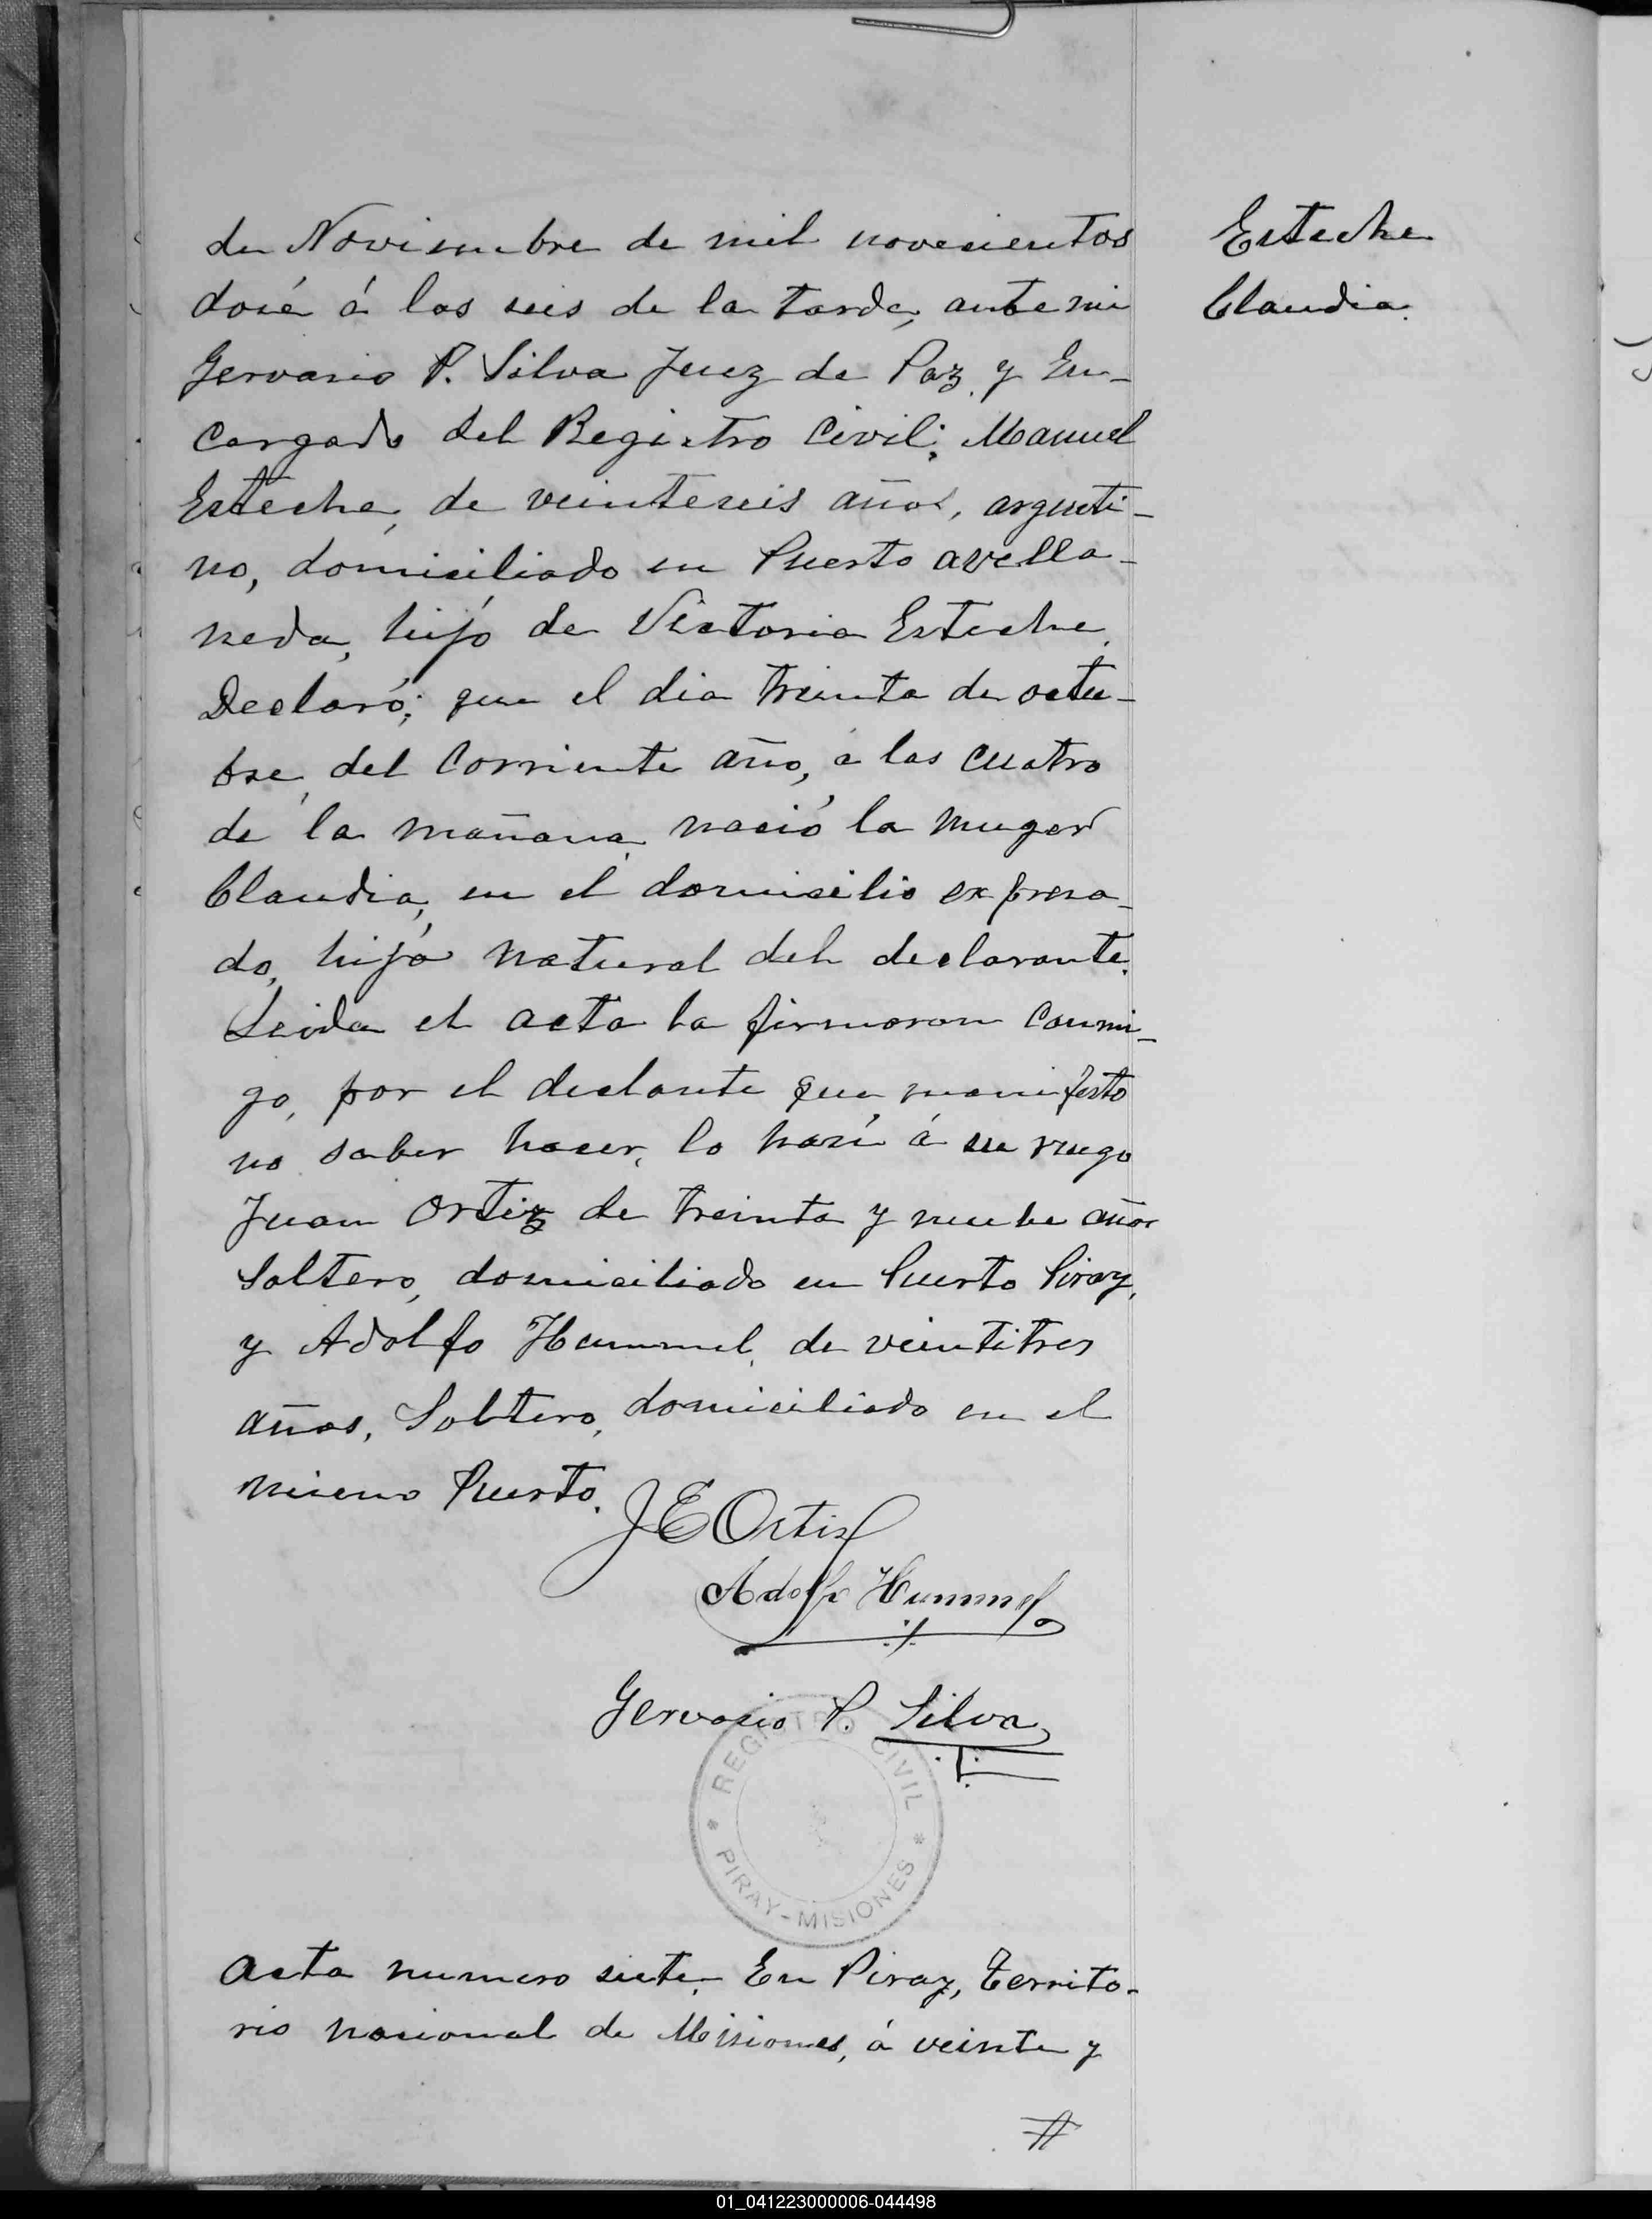 de Noviembre de mil novecientos
dosé á las seis de la tarde, ante mi
Gervasio P. Silva Juez de Paz y En-
cargado del Registro Civil; Manuel
Esteche, de veinteseis años, argenti-
no, domiciliado en Puerto avella-
neda, hijo de Victoria Esteche.
Declaró; que el dia treinta de octu-
bre, del corriente año, a las cuatro
de la mañana, nació la muger
Claudia, en el domicilio expresa-
do, hija natural del declarante.
Leida el acta la firmaron conmi-
go, por el declante que manifesto
no saber haser, lo hasé á su ruego
Juan Ortiz de treinta y nuebe años
Soltero, domiciliado en Puerto Piray,
y Adolfo Hummel, de veintitres
años, Soltero, domiciliado en el
mismo Puerto.
J E Ortiz
Adolfo Hummel
Gervasio P. Silva
REGISTRO CIVIL
* PIRAY-MISIONES *
Acta numero siete. En Piray, Territo-
rio nacional de Misiones, á veinte y
Esteche
Claudia.
01_041223000006-044498